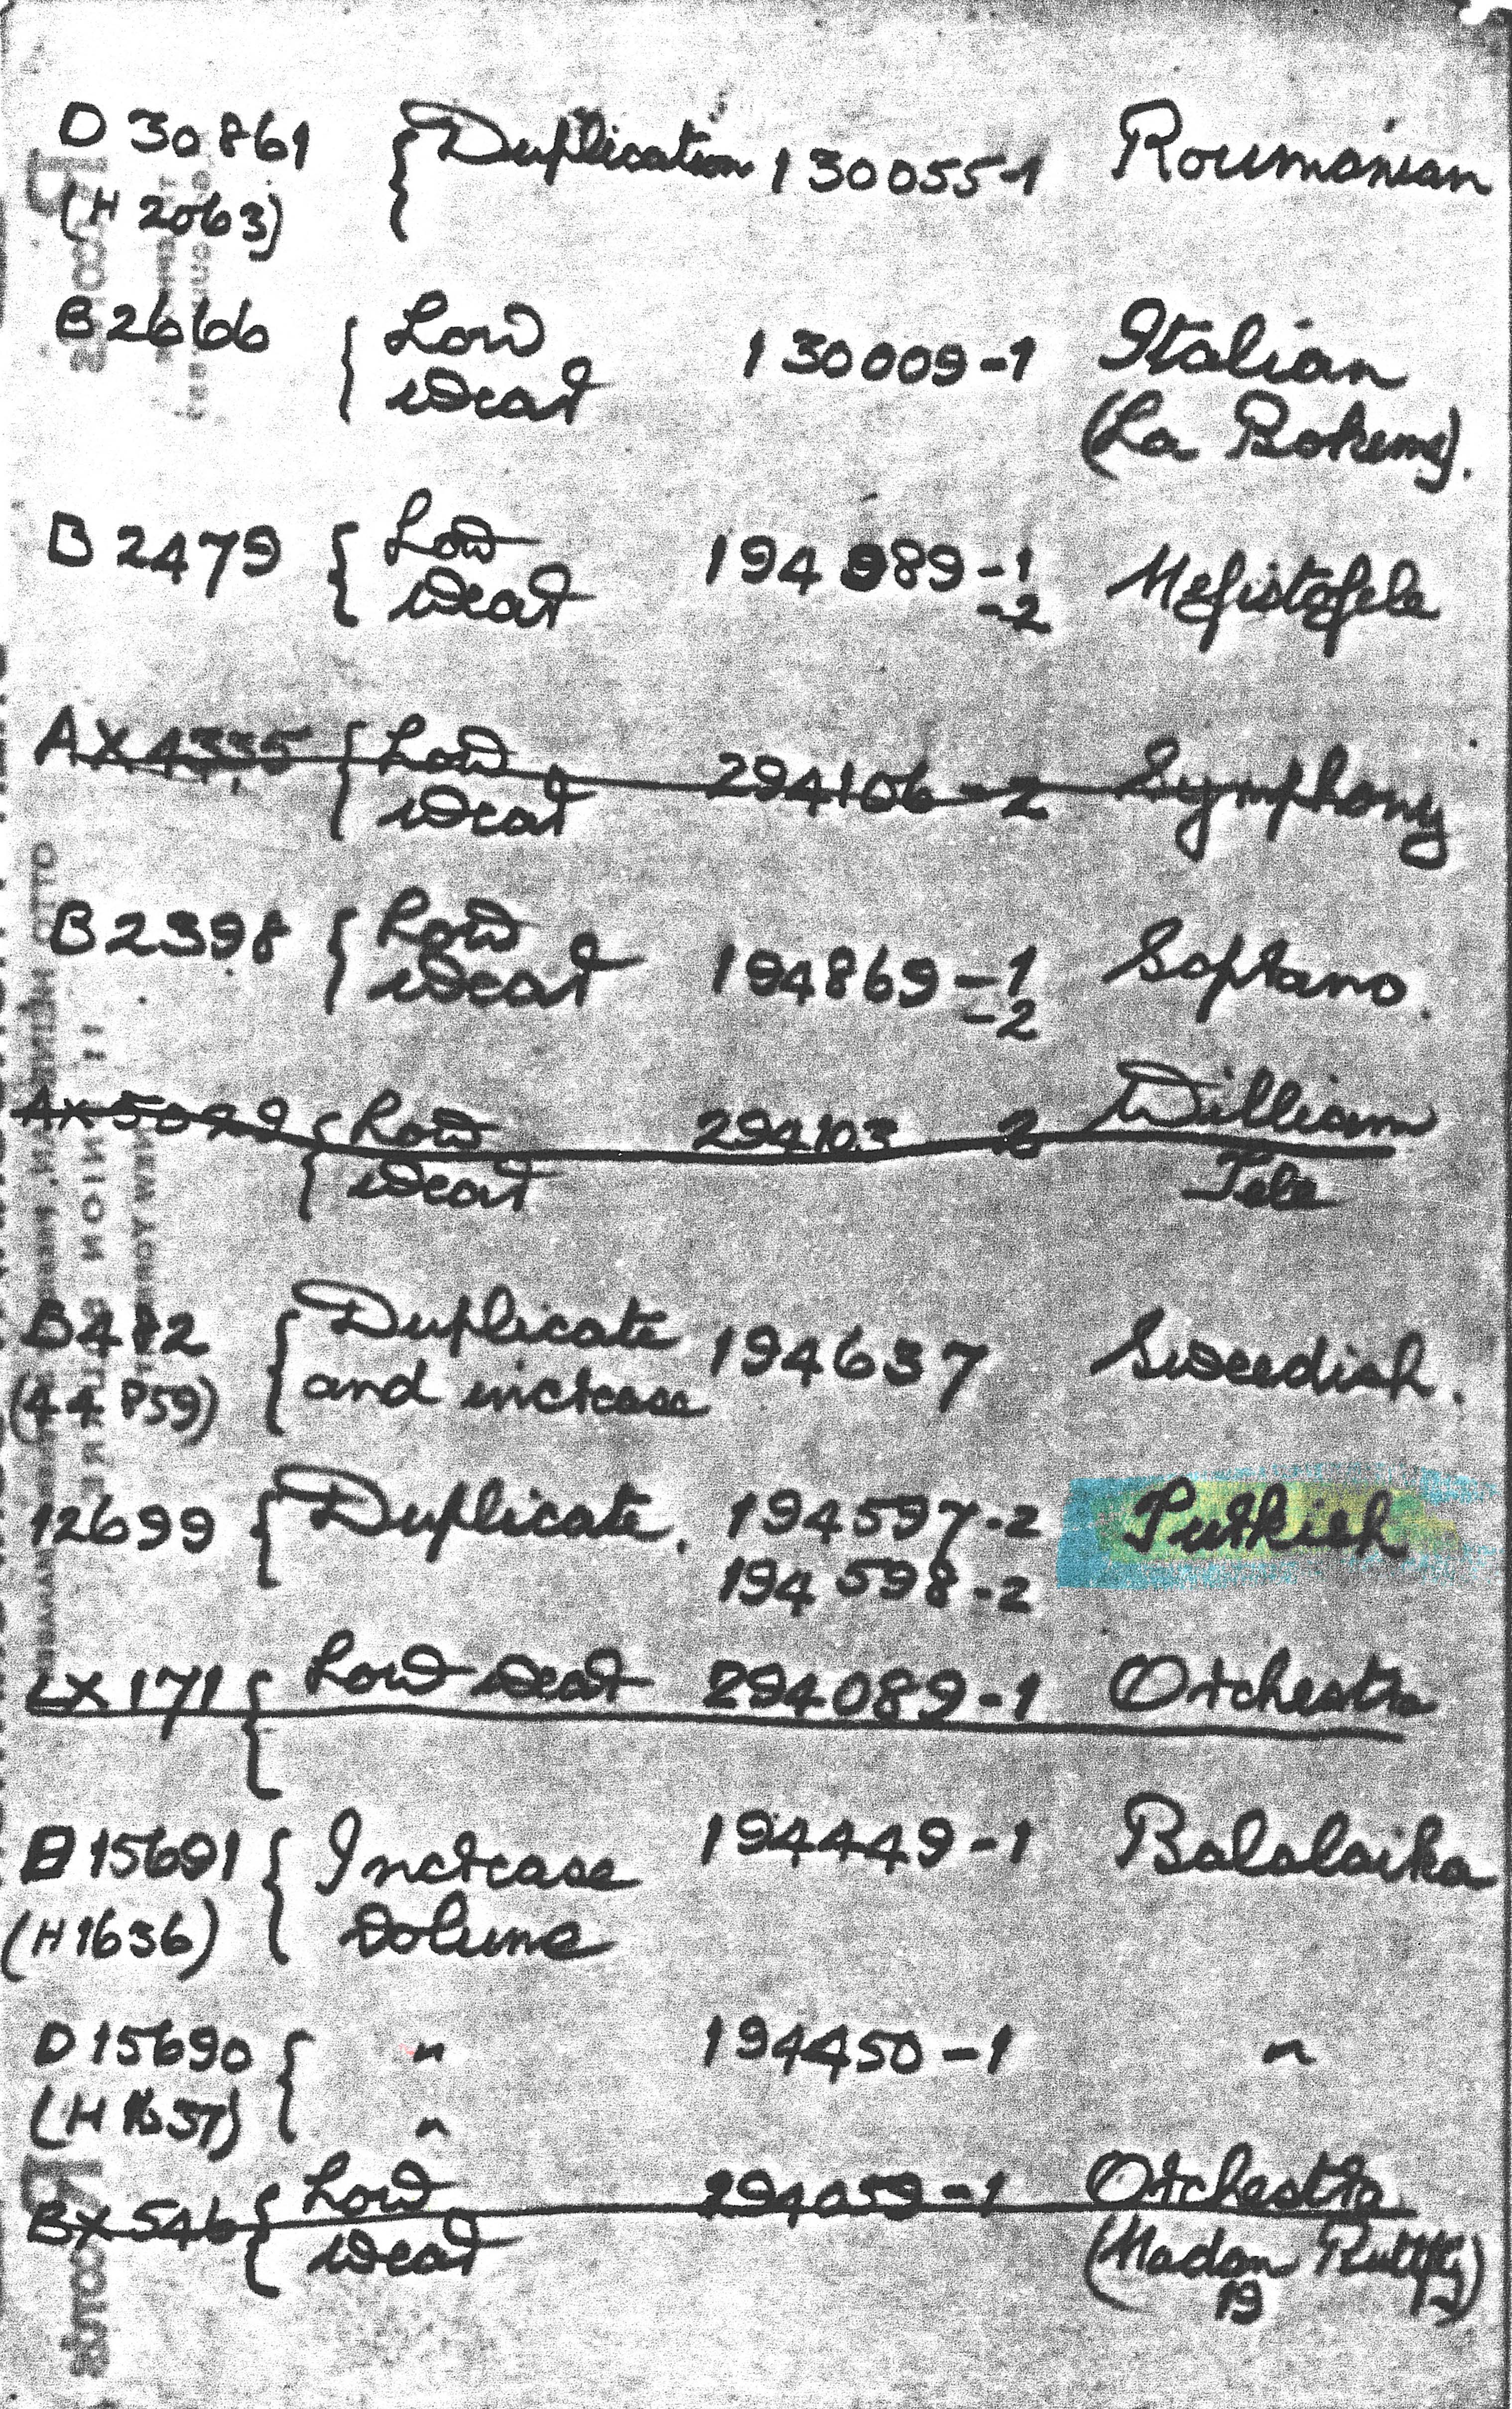 D 30861 { Duplication 130055-1 Roumanian
(H 2063)
B 2666 { Low 130009-1 Italian
wear (La Boheme).
B 2479 { Low 194989-1 Mefistofele
wear -2
AX 4335 { Low 294106-2 Symphony
wear
B 2398 { Low 194869-1 Soprano.
wear -2
{ Low 294103 2 William
wear Tele
{ Duplicate 194637 Sweedish.
(44859) and increase
12699 { Duplicate. 194597-2 Turkish
194598-2
LX 171 { Low wear 294089-1 Orchestra
15691 { Increase 194449-1 Balalaika
(H 1636) Volume
D 15690 { " 194450-1 "
(H 1637) "
BX 546 { Low 294059-1 Orchestra
wear (Madam